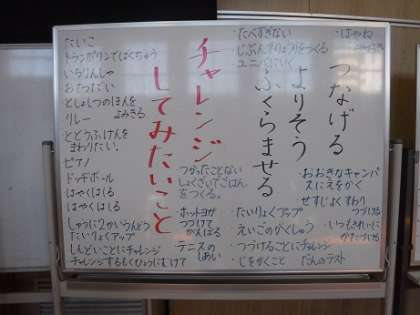 つなげる
よりそう
ふくらませる
チャレンジ
してみたいこと
たいこ
トランポリンではくちゅう
いちりんしゃ
おてつだい
としょしつのほんを
よみきる
リレー
とどうふけんを
まわりたい。
ピアノ
ドッヂボール
はやくはしる
はやくはしる
しゅうに2かいうんどう
たいりょくアップ
しんどいことにチャレンジ
チャレンジするもくひょうにむけて
つかったことない
しょくざいでごはん
をつくる。
ホットヨガ
つづけて
がんばる
テニスの
しあい
・たべすぎない
・じぶん
をつくる
ユニバにいく
・はやね
・おおきなキャンバ
スにえをかく
せすじよくすわり
つづける
・たいりょくアップ
・いつもきれいに
かたづける
えいごのがくしゅう
・つづけることにチャレンジ
・じをかくこと
だんのテスト